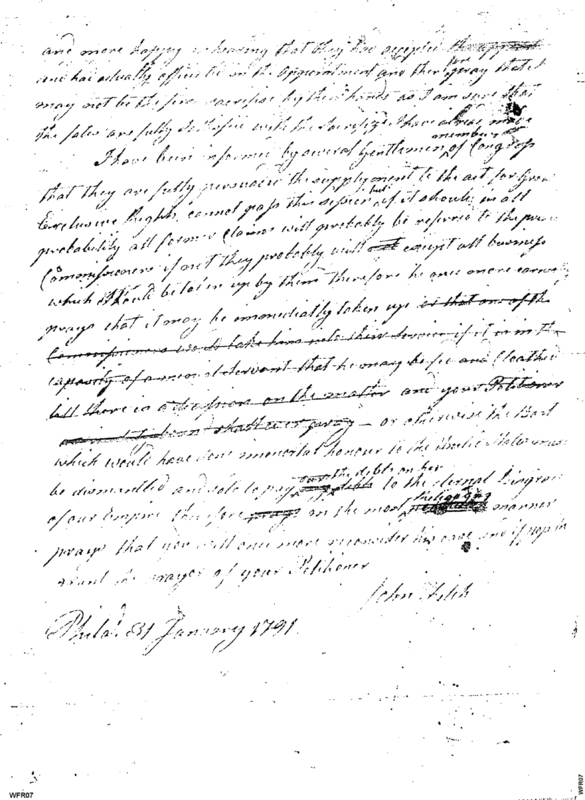 and more happy in hearing that they have accepted the
and has actually officiated in the appointment and therefore pray that I
may not be the first sacrifice by their hands as I am sure that
the fates are fully satisfied with the sacrifices I have already made
I have been informed by several Gentlemen members of Congress
that they are fully persuaded the supplyment to the act for
Exclusive Rights, cannot pass this session but if it should in all
probability all former Claims will probably be refered to the
Commissioners if not they probably will except all business
which should be taken up by them therefore he once more
prays that it may be immediatly taken up or that one of the
Commissioners would take him into their service if it is in the
capacity of a menial servant that he may be fed and Cloathed
till there is a decision on the matter and your Petitioner
shall ever pray — or otherwise the Boat
which would have done immortal honour to the States must
be dismantled and sold to pay the debts on her to the eternal
of our Empire therefore prays in the most manner
prays that you will once more reconsider his case and if
grant the prayer of your Petitioner
John Fitch
Philad. 31 January 1791.
WFR07
WFR07